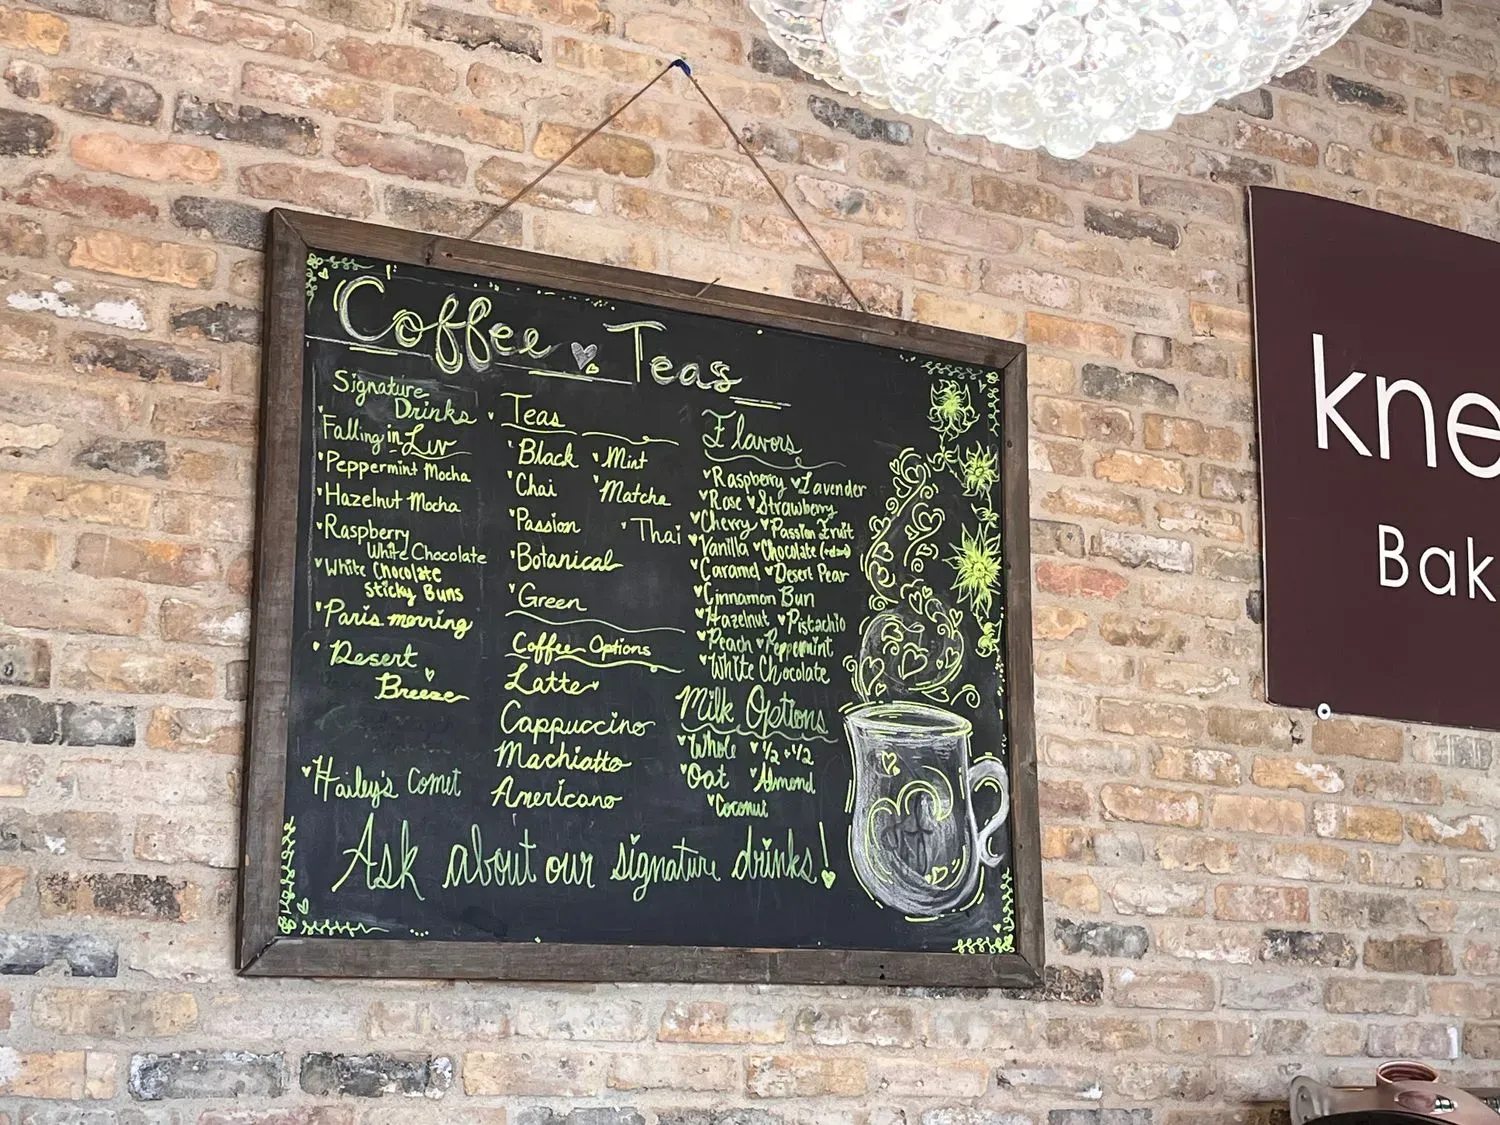 Coffee Teas
Signature
Drinks
Falling in Luv
Peppermint Mocha
Hazelnut Mocha
Raspberry
White Chocolate
White Chocolate
Sticky Buns
Paris morning
Desert
Breeze
Hailey's Comet
Teas
Black Mint
Chai Matcha
Passion Thai
Botanical
Green
Coffee Options
Latte
Cappuccino
Machiatto
Americano
Flavors
Raspberry Lavender
Rose Strawberry
Cherry Passion Fruit
Vanilla Chocolate
Caramel Desert Pear
Cinnamon Bun
Hazelnut Pistachio
Peach Peppermint
White Chocolate
Milk Options
Whole 1/2 + 1/2
Oat Almond
Coconut
Ask about our signature drinks!
kne
Bak